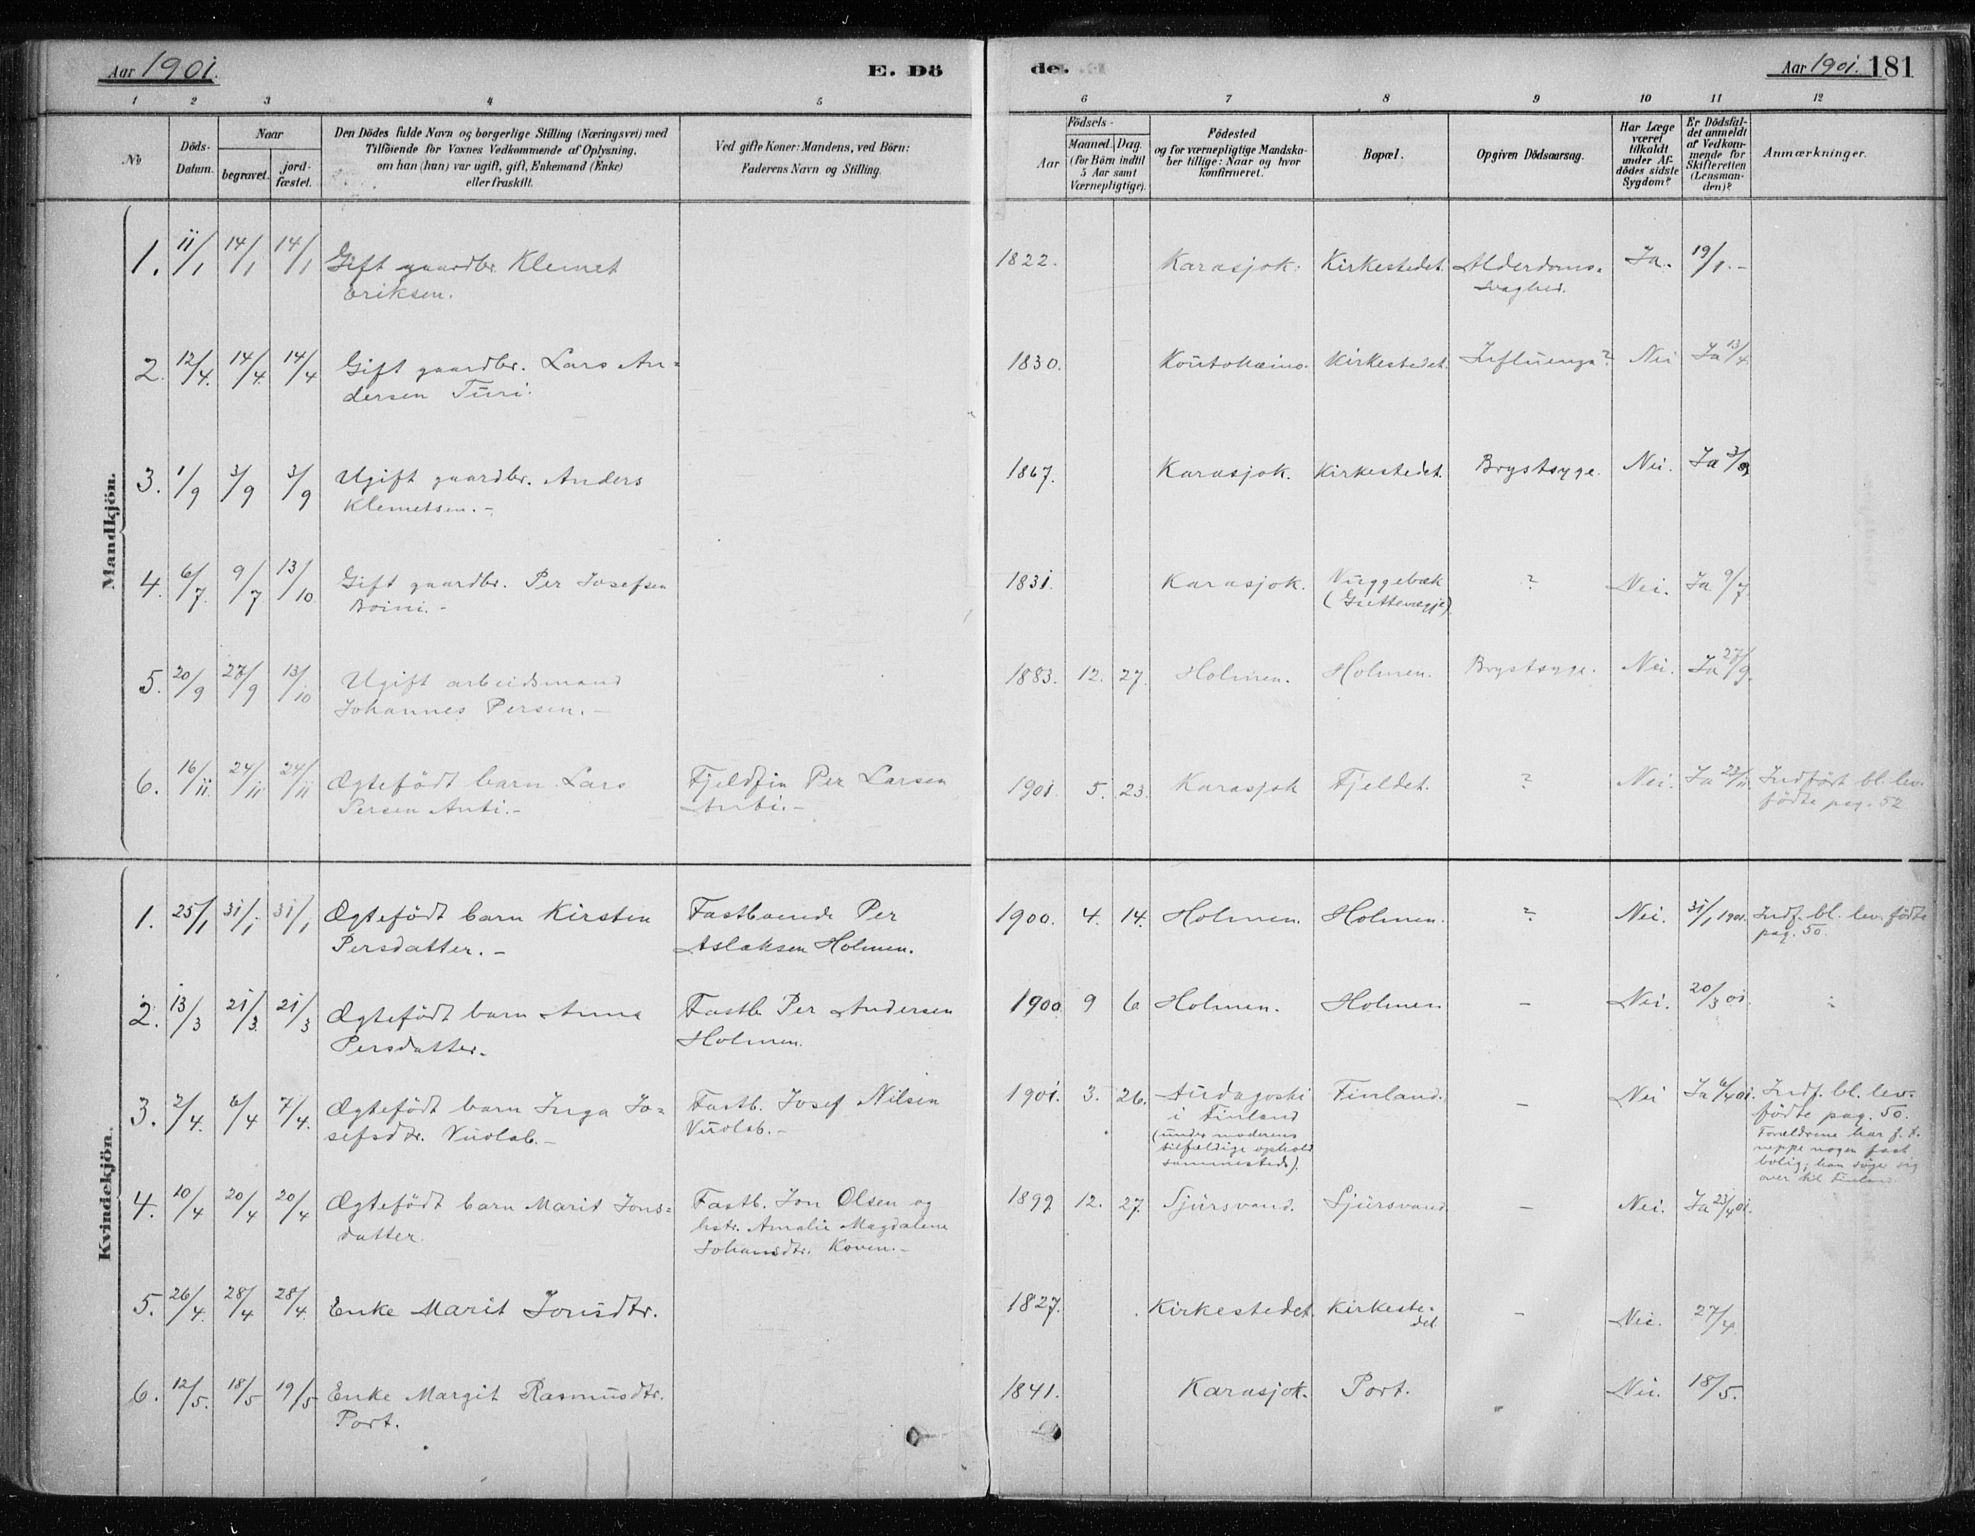 Aar 1901. E. Dö
de. Aar 1901. 181
1 2 3 4 5 6 7 8 9 10 11 12
No
Döds-Datum.
Naar
begravet.
jord-fæstet.
Den Dödes fulde Navn og borgerlige Stilling (Næringsvei) med
Tilföiende for Voxnes Vedkommende af Oplysning,
om han (hun) var ugift, gift, Enkemand (Enke)
eller fraskilt.
Ved gifte Koner: Mandens, ved Börn:
Faderens Navn og Stilling.
Födsels-
Aar
Maaned. Dag.
(for Börn indtil
5 Aar samt
Værnepligtige).
Födested
og for værnepligtige Mandska-
ber tillige: Naar og hvor
konfirmeret.
Bopæl.
Opgiven Dödsaarsag.
Har Læge
været
tilkaldt
under Af-
dödes sidste
Sygdom?
Er Dödsfal-
det anmeldt
af Vedkom-
mende for
Skifteretten
(Lensman-
den)?
Anmærkninger.
Mandkjön.
1. 11/1 14/1 14/1 Gift gaardbr. Klemet
Eriksen.
1822. Karasjok. Kirkestedet. Alderdoms-
svaghed.
Ja. 19/1.-
2. 12/4. 14/4. 14/4 Gift gaardbr. Lars An-
dersen Turi.
1830. Koutokæino. Kirkestedet. Influenza? Nei Ja 13/4.
3. 1/9 3/9 3/9 Ugift gaardbr. Anders
Klemetsen.-
1867. Karasjok. Kirkestedet. Brystsyge. Nei. Ja 3/9
4. 6/7. 9/7 13/10. Gift gaardbr. Per Josefsen
Boini.-
1831. Karasjok. Vuggebæk
? Nei. Ja 9/7
5. 20/9 27/9 13/10 Ugift arbeidsmand
Johannes Persen.-
1883. 12. 27. Holmen. Holmen. Brystsyge. Nei. Ja 27/9.
6. 16/11. 24/11 24/11 Ægtefödt barn Lars
Persen Anti.-
Fjeldfin Per Larsen
Anti.-
1901. 5. 23. Karasjok Fjeldet. ? Nei. Ja 23/11. Indfört bl. lev.
födte pag. 52
Kvindekjön.
1. 25/1 31/1 31/1 Ægtefödt barn Kirsten
Persdatter.-
Fastboende Per
Aslaksen Holmen.
1900. 4. 14. Holmen. Holmen. ? Nei. 31/1 1901. Indf. bl. lev. födte
pag. 50.
2. 13/3 21/3. 21/3 Ægtefödt barn Anna
Persdatter.
Fastb. Per Andersen
Holmen.
1900 9 6 Holmen. Holmen. - Nei. 20/3 01.
3. 2/4. 6/4 7/4. Ægtefödt barn Inga Jo-
sefsdtr. Vuolab.-
Fastb. Josef Nilsen
Vuolab.-
1901. 3. 26.
i Finland
(under moderens
tilfældige ophold
sammesteds).
Finland. - Nei Ja 6/4 01. Indf. bl. lev.
födte pag. 50.
Forældrene har f. t.
neppe nogen fast
bolig; han söger sig
over til Finland
4. 10/4 20/4 20/4 Ægtefödt barn Marit Jons-
datter.
Fastb. Jon Olsen og
hstr. Amalie Magdalene
Johansdtr. Koven.-
1899 12. 27 Sjursvand. Sjursvand - Nei. Ja 23/4 01.
5. 26/4. 28/4 28/4. Enke Marit Jonsdtr.
1827. Kirkestedet. Kirkeste-
det.
- Nei. 27/4.
6. 12/5. 18/5 19/5 Enke Margit Rasmusdtr.
Port.
1841. Karasjok. Port. Nei. 18/5.